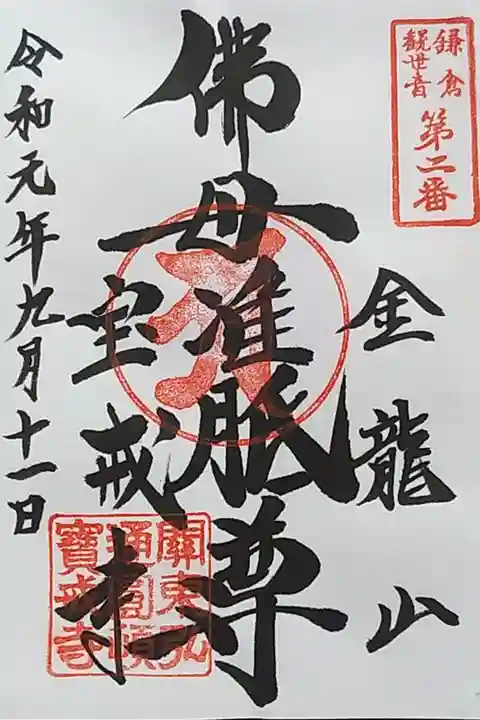 鎌倉
観世音
第二番
金龍山
佛母准胝尊
宝戒寺
令和元年九月十一日
寶戒寺